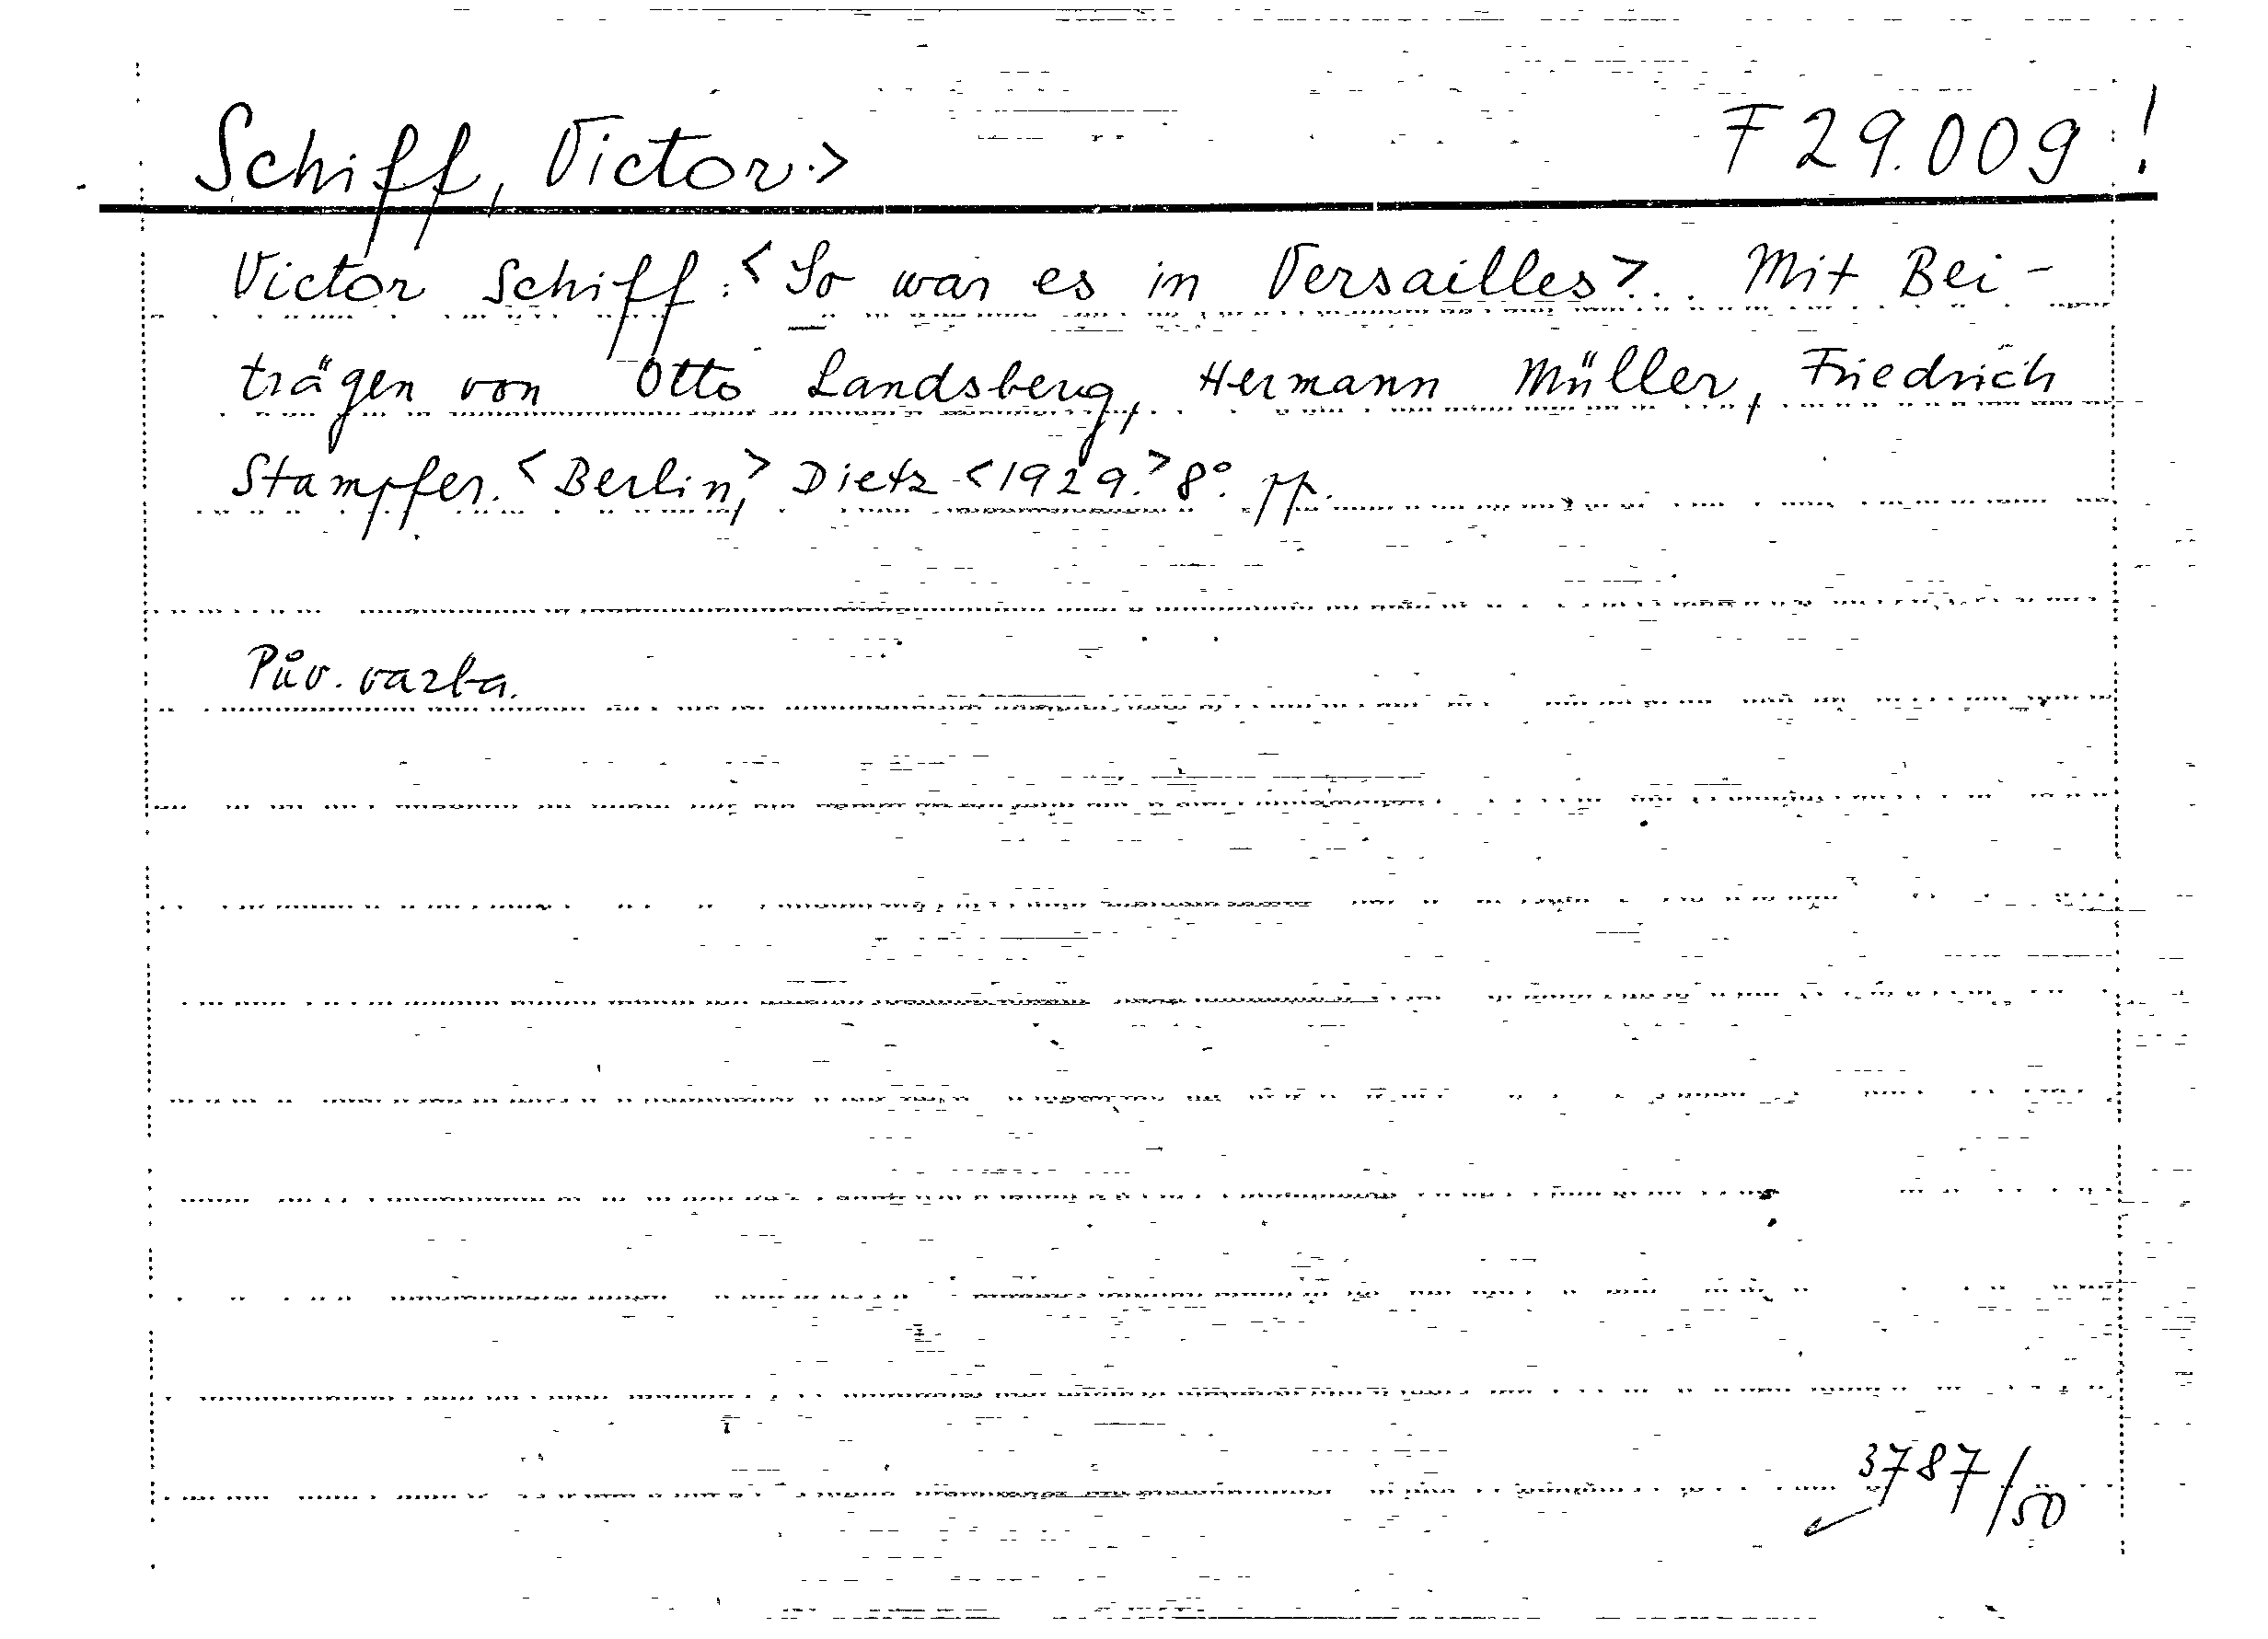 Schiff, Victor.>
F 29.009 !
Victor Schiff: <So war es in Versailles>.. Mit Bei-
trägen von Otto Landsberg, Hermann Müller, Friedrich
Stampfer. <Berlin,> Dietz <1929.> 8°. pp.
Pův. vazba.
3787/50